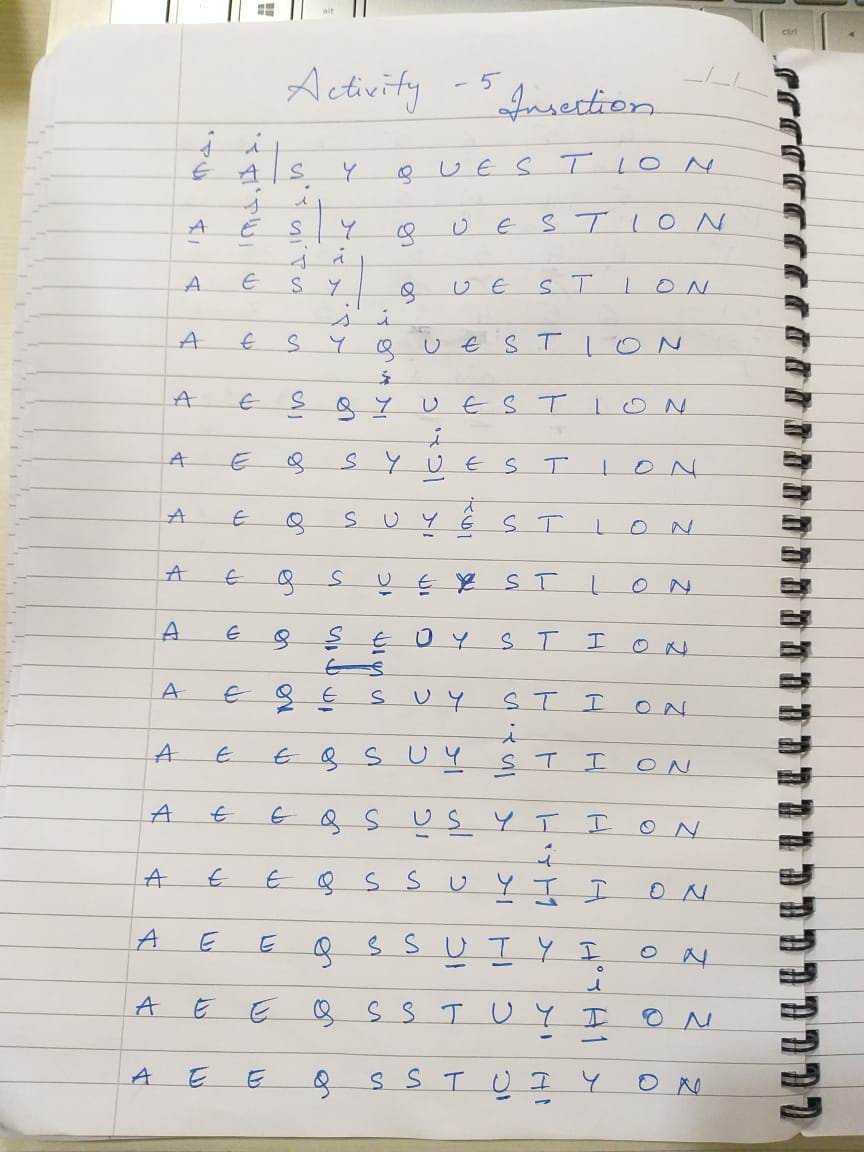 alt
ctrl
Activity - 5
Insertion
j i
E A | S Y Q U E S T I O N
j i
A E S | Y Q U E S T I O N
j i
A E S Y | Q U E S T I O N
j i
A E S Y Q U E S T I O N
i
A E S Q Y U E S T I O N
i
A E Q S Y U E S T I O N
i
A E Q S U Y E S T I O N
A E Q S U E Y S T I O N
A E Q S E U Y S T I O N
E S
A E Q E S U Y S T I O N
i
A E E Q S U Y S T I O N
A E E Q S U S Y T I O N
i
A E E Q S S U Y T I O N
A E E Q S S U T Y I O N
i
A E E Q S S T U Y I O N
A E E Q S S T U I Y O N